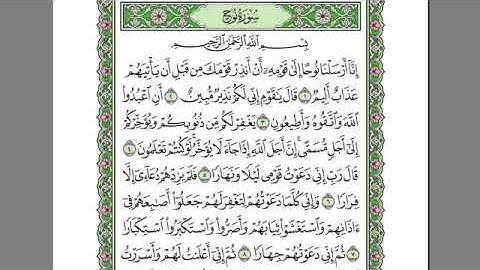 سُورَةُ نُوحٍ
بِسْمِ ٱللَّهِ ٱلرَّحْمَٰنِ ٱلرَّحِيمِ
إِنَّآ أَرْسَلْنَا نُوحًا إِلَىٰ قَوْمِهِۦٓ أَنْ أَنذِرْ قَوْمَكَ مِن قَبْلِ أَن يَأْتِيَهُمْ
عَذَابٌ أَلِيمٌ ١ قَالَ يَٰقَوْمِ إِنِّى لَكُمْ نَذِيرٌ مُّبِينٌ ٢ أَنِ ٱعْبُدُوا۟
ٱللَّهَ وَٱتَّقُوهُ وَأَطِيعُونِ ٣ يَغْفِرْ لَكُم مِّن ذُنُوبِكُمْ وَيُؤَخِّرْكُمْ
إِلَىٰٓ أَجَلٍ مُّسَمًّى إِنَّ أَجَلَ ٱللَّهِ إِذَا جَآءَ لَا يُؤَخَّرُ لَوْ كُنتُمْ تَعْلَمُونَ ٤
قَالَ رَبِّ إِنِّى دَعَوْتُ قَوْمِى لَيْلًا وَنَهَارًا ٥ فَلَمْ يَزِدْهُمْ دُعَآءِىٓ إِلَّا
فِرَارًا ٦ وَإِنِّى كُلَّمَا دَعَوْتُهُمْ لِتَغْفِرَ لَهُمْ جَعَلُوٓا۟ أَصَٰبِعَهُمْ فِىٓ
ءَاذَانِهِمْ وَٱسْتَغْشَوْا۟ ثِيَابَهُمْ وَأَصَرُّوا۟ وَٱسْتَكْبَرُوا۟ ٱسْتِكْبَارًا
٧ ثُمَّ إِنِّى دَعَوْتُهُمْ جِهَارًا ٨ ثُمَّ إِنِّىٓ أَعْلَنتُ لَهُمْ وَأَسْرَرْتُ